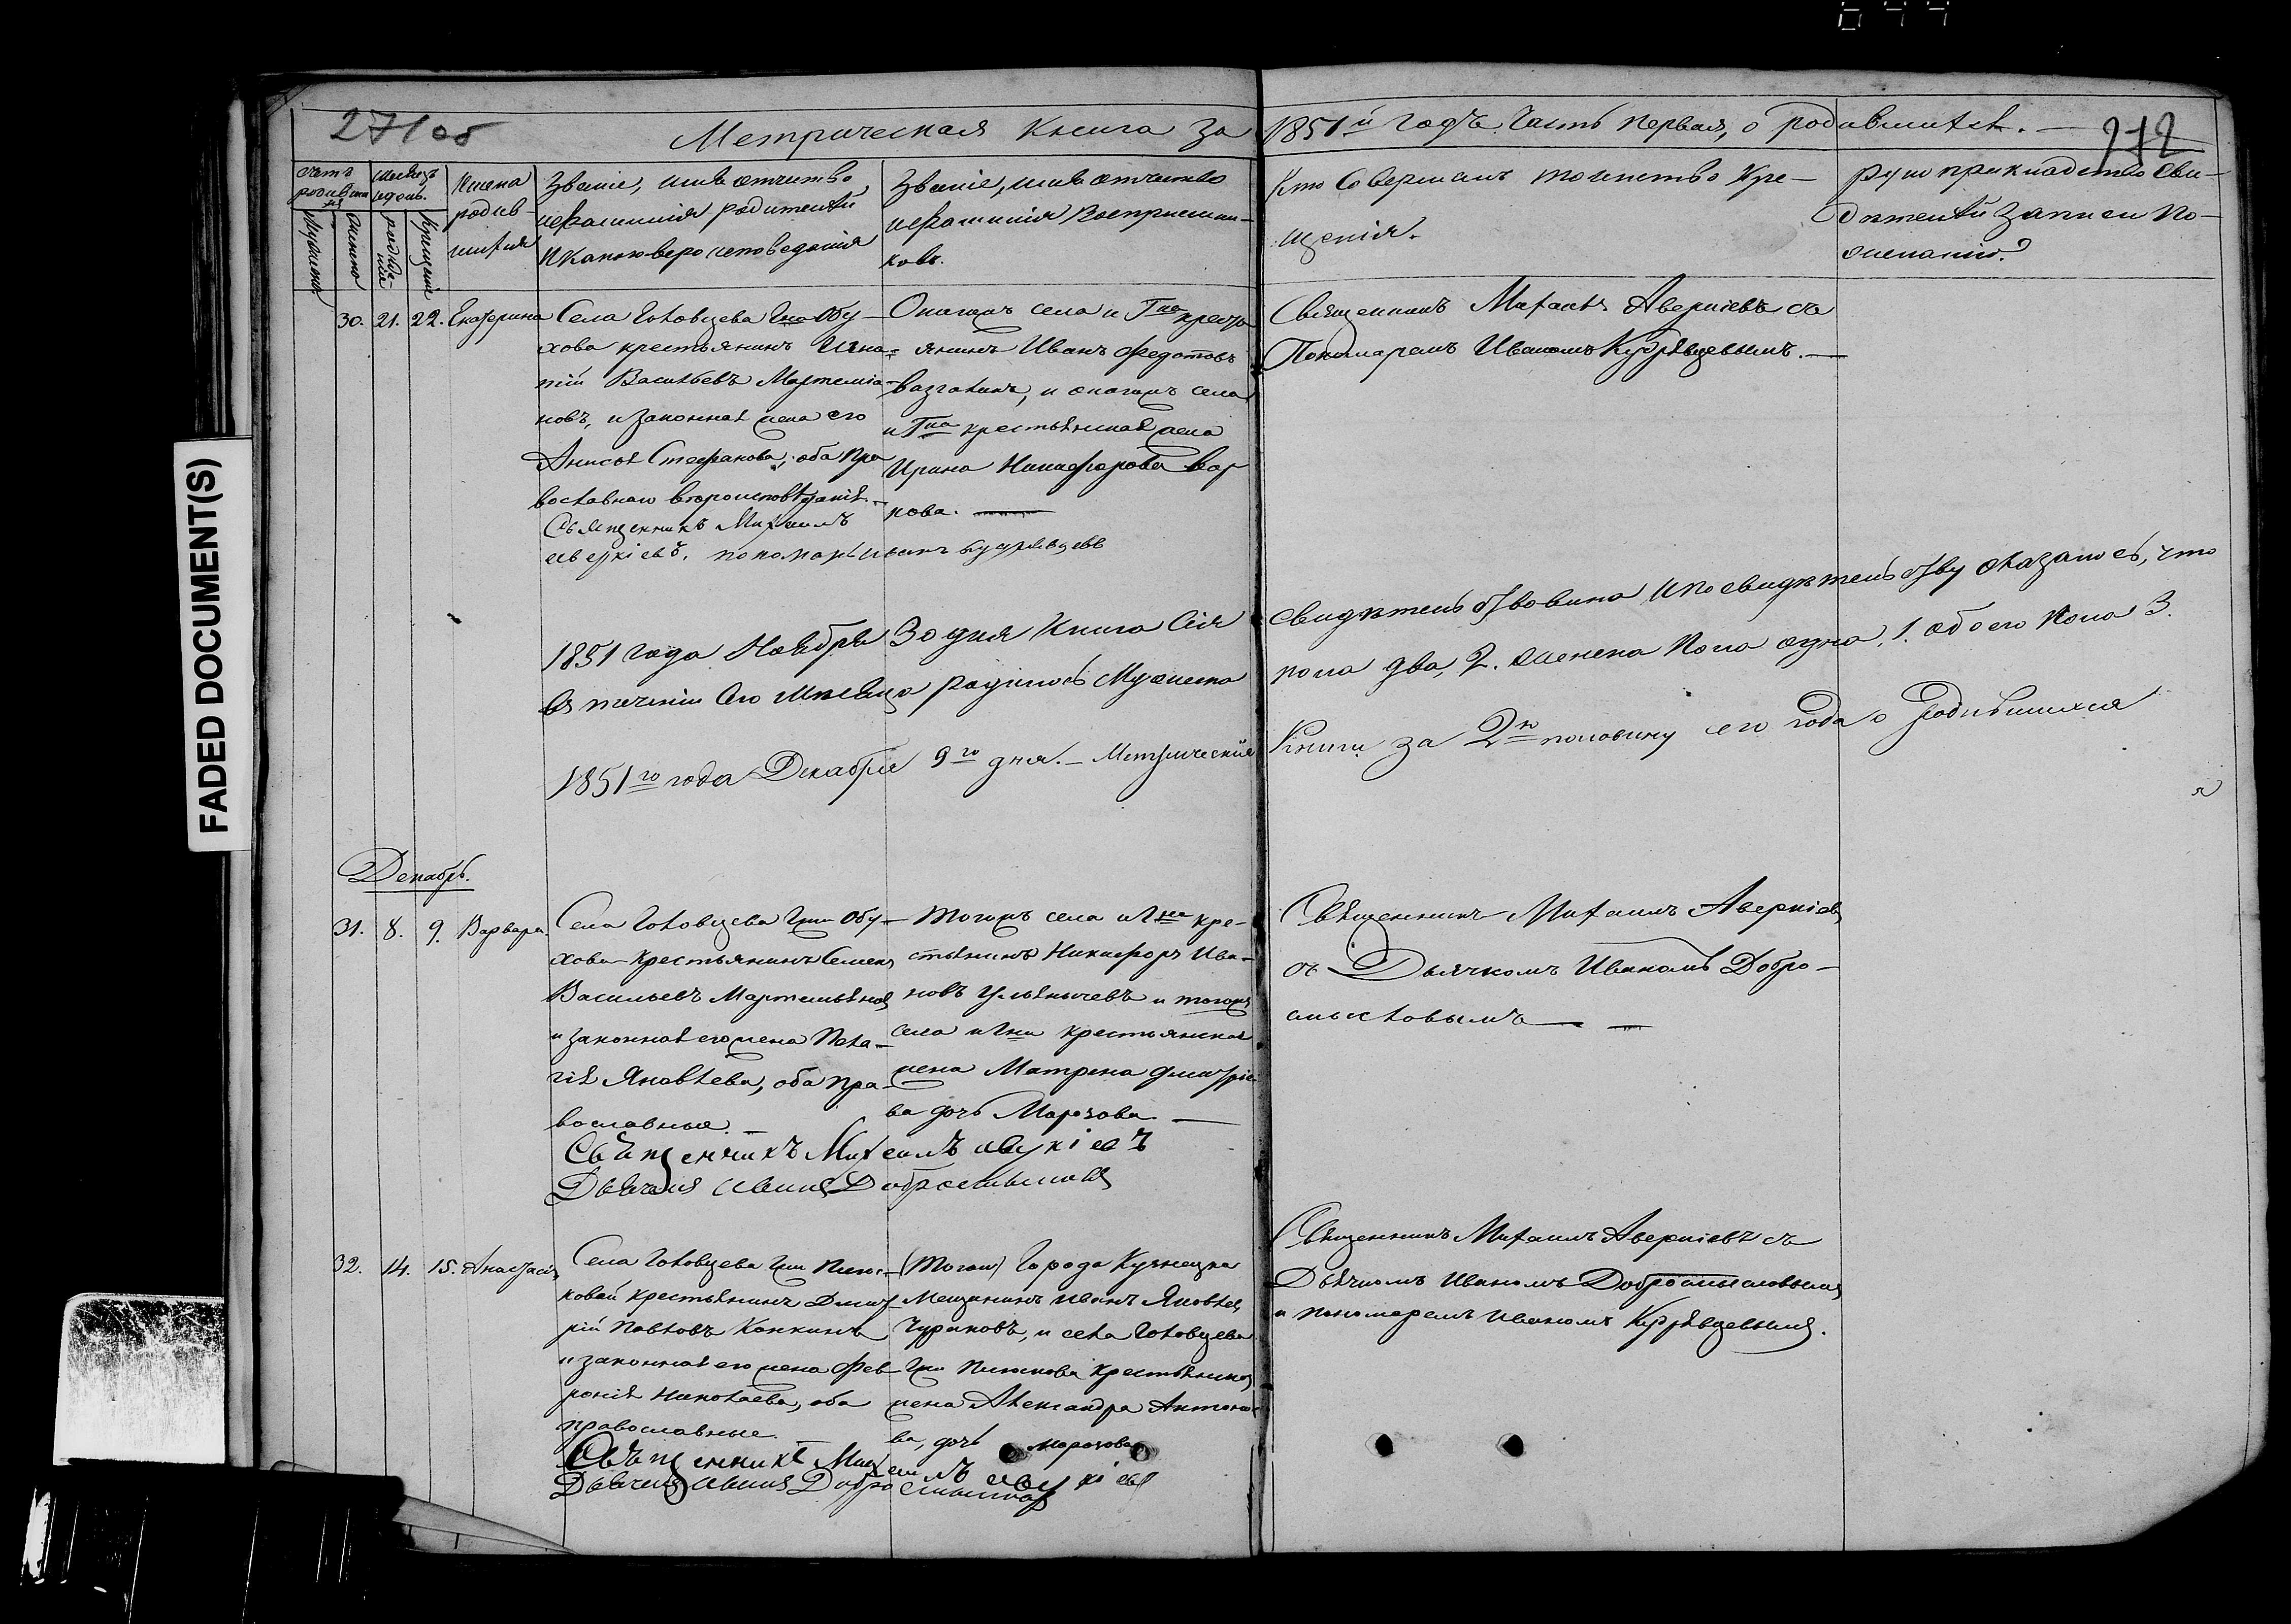 644
FADED DOCUMENT(S)
271 об
Метрическая Книга за 1851й годъ. Часть первая, о родившихся.
272
Счетъ родившихся
Мужеска
Женска
Месяцъ и день.
рожденія
крещенія
Имена
родив-
шихся
Званіе, имя отчество,
и фамилія родителей
и какого вероисповеданія
Званіе, имя отчество
и фамилія восприемни-
ковъ.
Кто совершалъ таинство кре-
щенія.
Рукоприкладство сви-
детелей записи по-
желанію.
30. 21. 22. Екатерина
Села Головцева Гна Обу-
хова крестьянинъ Игна-
тій Васильевъ Мартемья-
новъ, и законная жена его
Анисья Стефанова, оба пра
вославнаго вероисповѣданія.
Священникъ Михаилъ
Аверкіевъ. пономарь Иванъ Кудрявцевъ
Онагожъ села и Гна кресть
янинъ Иванъ Федотовъ
и онагожъ села
и Гна крестьянская жена
Ирина Никифорова
Священникъ Михаилъ Аверкіевъ съ
Пономаремъ Иваномъ Кудрявцевымъ.
1851 года Ноября 30 дня Книга сія свидѣтельствована и по свидѣтельству оказалось, что
въ теченіи сего мѣсяца родилось Мужеска пола два, 2. женска пола одна, 1. обоего пола 3.
1851го года Декабря 9го дня. Метрическія Книги за 2ю половину сего года о родившихся
Декабрь.
31. 8. 9. Варвара
Села Головцева Гна Обу-
хова крестьянинъ Семенъ
Васильевъ Мартемьяновъ
и законная его жена Пела-
гія Яковлева, оба пра-
вославные.
Священникъ Михаилъ Аверкіевъ
Дьячекъ Иванъ Добросмысловъ
Тогожъ села и Гна кре-
стьянинъ Никифоръ Ива-
новъ и тогожъ
села и Гна крестьянская
жена Матрена Дмитріе
ва дочь Морозова
Священникъ Михаилъ Аверкіевъ
съ Дьячкомъ Иваномъ Добро-
смысловымъ
32. 14. 15. Анастасія
Села Головцева Гна
крестьянинъ Дмит
рій Павловъ Канкинъ
и законная его жена Фев
ронія Николаева, оба
православные.
Священникъ Михаилъ Аверкіевъ
Дьячекъ Иванъ Добросмысловъ
(Тогож) Города Кузнецка
Мещанинъ Иванъ Яковлевъ
Чураковъ, и села Головцева
Гна крестьянская
жена Александра Антоно
ва, дочь Морозова
Священникъ Михаилъ Аверкіевъ съ
Дьячкомъ Иваномъ Добросмысловымъ
и пономаремъ Иваномъ Кудрявцевымъ.